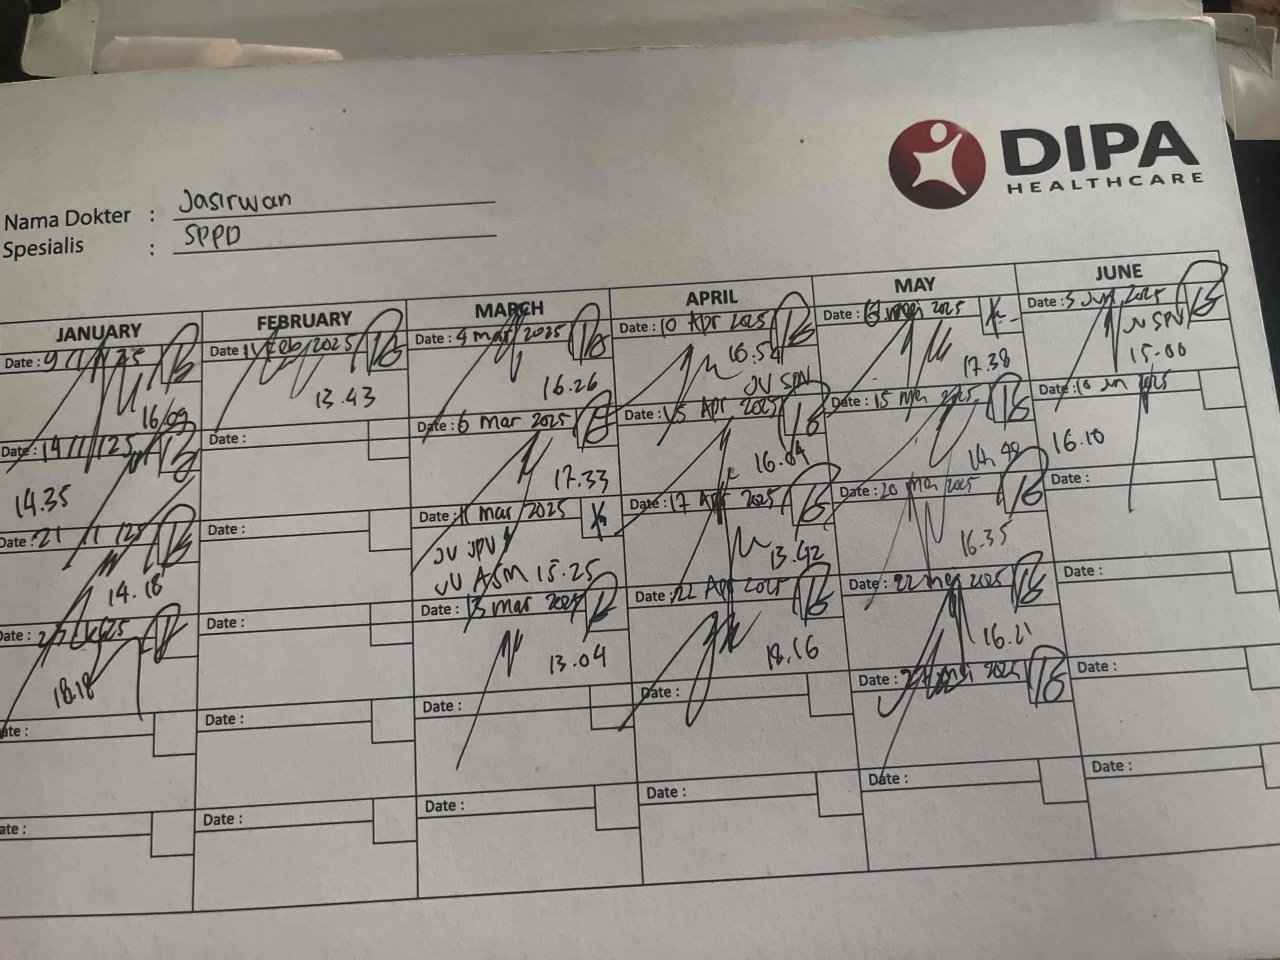 DIPA
HEALTHCARE
Nama Dokter : Jasirwan
Spesialis : SPPD
JANUARY
Date : 9/1/25
16.09
Date : 14/1/25
14.35
Date : 21/1/25
14.18
Date :
18.18
Date :
Date :
FEBRUARY
Date : Feb 2025
13.43
Date :
Date :
Date :
Date :
Date :
MARCH
Date : 4 mar 2025
16.26
Date : 6 mar 2025
17.33
Date : 11 mar 2025
JV
JV ASM 15.25
Date : 13 mar 2025
13.04
Date :
Date :
APRIL
Date : 10 Apr 2025
16.54
JV SPN
Date : 15 Apr 2025
16.04
Date : 17 Apr 2025
13.42
Date : 22 Apr 2025
18.16
Date :
Date :
MAY
Date : mei 2025
17.38
Date : 15 mei 2025
Date : 20 mei 2025
16.35
Date : 22 mei 2025
16.21
Date : mei 2025
Date :
JUNE
Date : 5 Jun 2025
JV SPN
15.00
Date : 10 Jun 2025
16.10
Date :
Date :
Date :
Date :